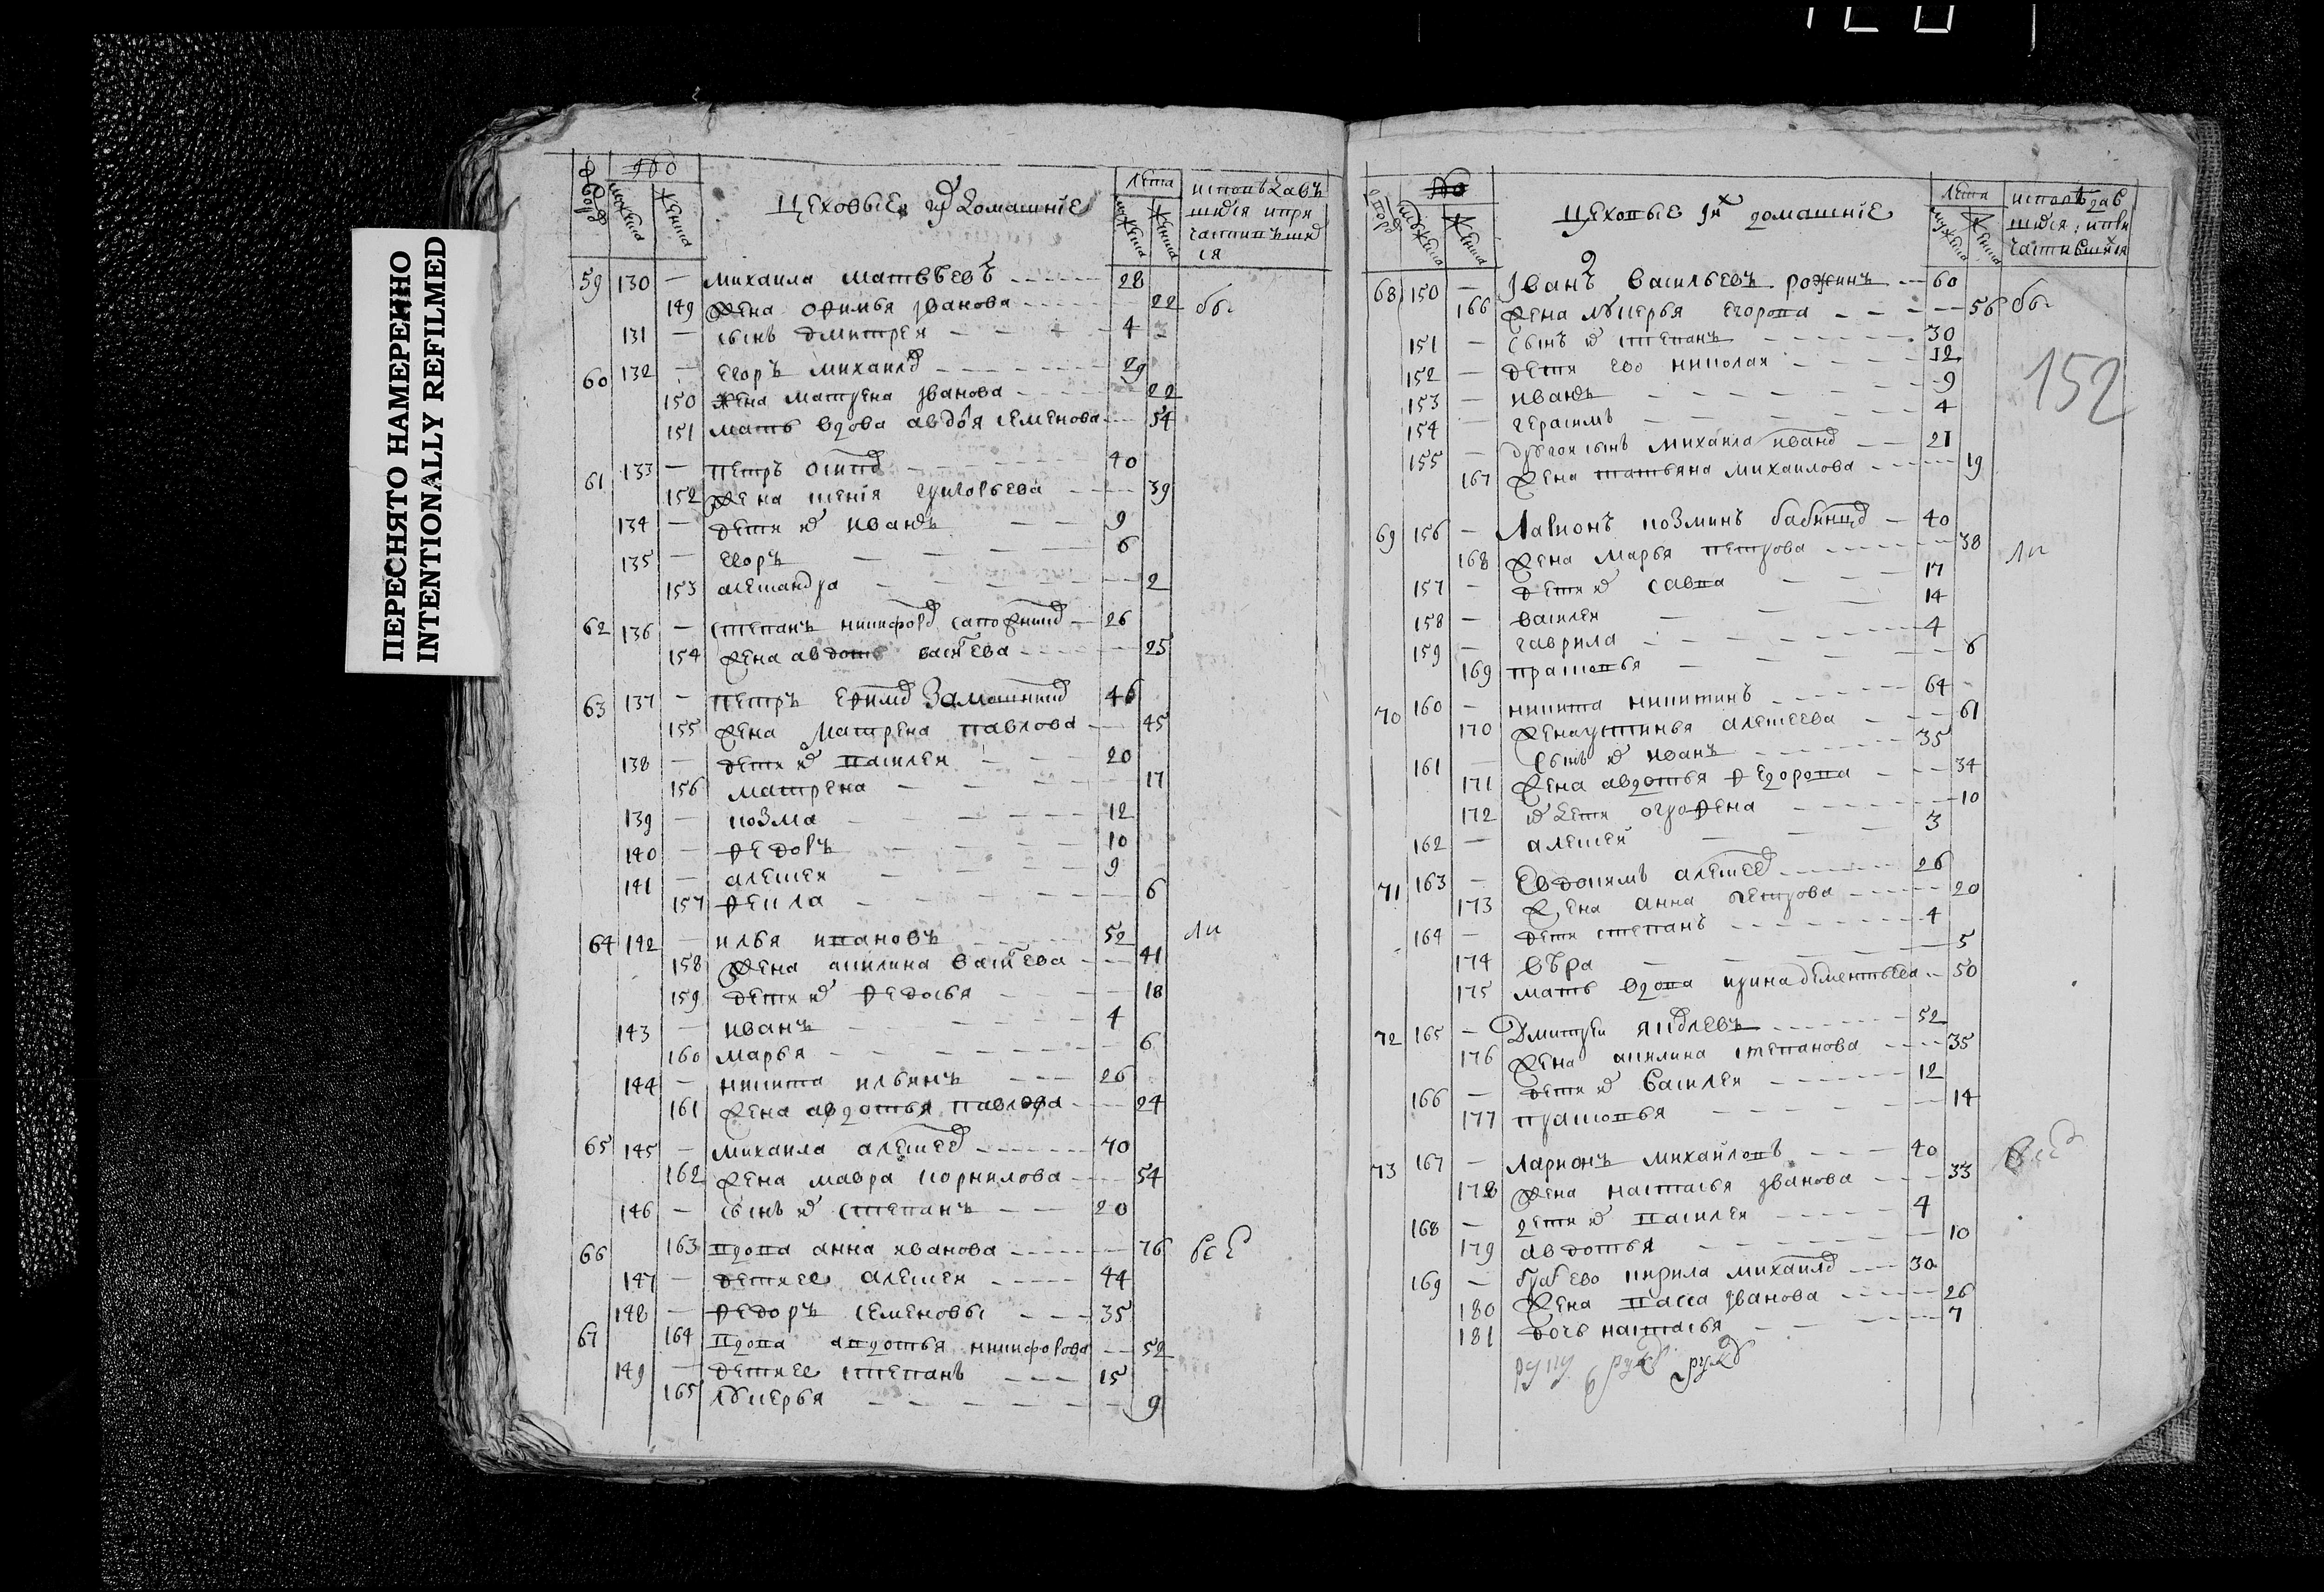 ПЕРЕСНЯТО НАМЕРЕННО
INTENTIONALLY REFILMED
цеховые и их домашние
лета
мужеска
женска
исповѣдавъ
шиеся и при
частивъшие
ся
59 130 — михаила матвѣевъ 28
149 жена офимья иванова 22 бы
131 — сынъ дмитреи 4
60 132 — егоръ михаилов 29
150 жена матрена иванова 22
151 мать вдова авдотья семенова 54
61 133 — петръ осипов 40
152 жена ксения григорьева 39
134 — дети их иванъ 9
135 — егоръ 6
153 александра 2
62 136 — степанъ никифоров сапожников 26
154 жена авдотья васильева 25
63 137 — петръ ефимов 46
155 жена матрена павлова 45
138 — дети их василеи 20
156 матрена 17
139 — козма 12
140 — федоръ 10
141 — алексеи 9
157 фекла 6
64 142 — илья ивановъ 52 ли
158 жена акилина васильева 41
159 дети их федосья 18
143 — иванъ 4
160 марья 6
144 — никита ильинъ 26
161 жена авдотья павлова 24
65 145 — михаила алексеев 70
162 жена мавра корнилова 54
146 — сынъ их степанъ 20
66 163 вдова анна иванова 76 все
147 — дети ее алексеи 44
148 — федоръ семеновы 35
67 164 вдова авдотья никифорова 52
149 — дети ее степанъ 15
165 лукерья 9
цеховые и их домашние
лета
мужеска
женска
исповѣдав
шиеся и при
частившиися
68 150 — Иванъ васильевъ рожинъ 60
166 жена лукерья егорова 56 бы
151 — сынъ их степанъ 30
152 — дети ево николаи 12
152
153 — иванъ 9
154 — герасимъ 4
155 — другои сынъ михаила иванов 21
167 жена татьяна михаилова 19
69 156 — Ларионъ козминъ 40
168 жена марья петрова 38 ли
157 — дети их савва 17
158 — василеи 14
159 — гаврила 4
169 прасковья 8
70 160 — никита никитинъ 64
170 жена устинья алексеева 61
161 — сынъ их иванъ 35
171 жена авдотья федорова 34
172 их дети огрофена 10
162 — алексеи 3
71 163 — Евдокимъ алексеев 26
173 жена анна петрова 20
164 — дети степанъ 4
174 вѣра 5
175 мать вдова ирина дементьева 50
72 165 — Дмитреи яковлевъ 52
176 жена акилина степанова 35
166 — дети их василеи 12
177 прасковья 14
73 167 — ларионъ михаиловъ 40 все
178 жена настасья иванова 33
168 — дети их василеи 4
179 авдотья 10
169 — брат ево кирила михаилов 30
180 жена васса иванова 26
181 дочь настасья 7